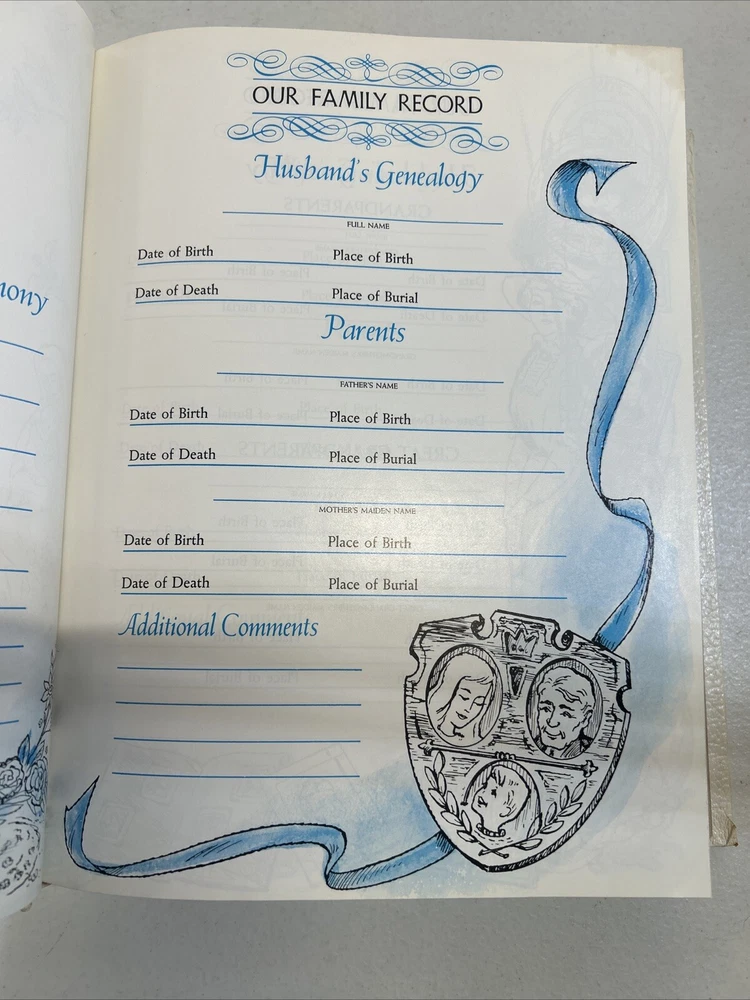 OUR FAMILY RECORD
Husband's Genealogy
FULL NAME
Date of Birth Place of Birth
Date of Death Place of Burial
Parents
FATHER'S NAME
Date of Birth Place of Birth
Date of Death Place of Burial
MOTHER'S MAIDEN NAME
Date of Birth Place of Birth
Date of Death Place of Burial
Additional Comments